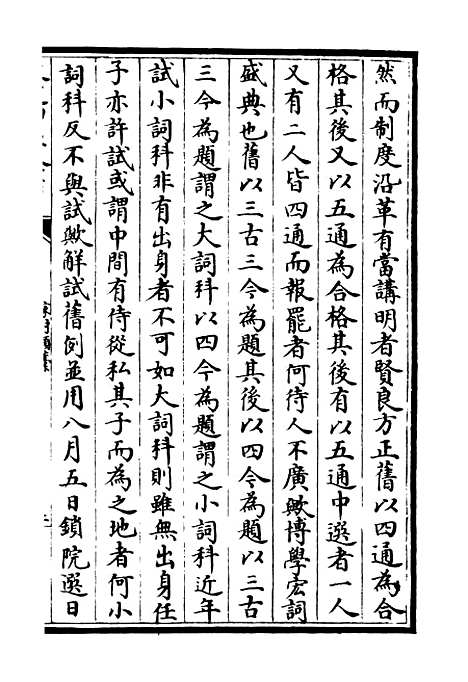 然而制度沿革有當講明者賢良方正舊以四通為合
格其後又以五通為合格其後有以五通中選者一人
又有二人皆四通而報罷者何待人不廣歟博學宏詞
盛典也舊以三古三今為題其後以四今為題以三古
三今為題謂之大詞科以四今為題謂之小詞科近年
試小詞科非有出身者不可如大詞科則雖無出身任
子亦許試或謂中間有侍從私其子而為之地者何小
詞科反不與試歟解試舊例並用八月五日鎖院選日